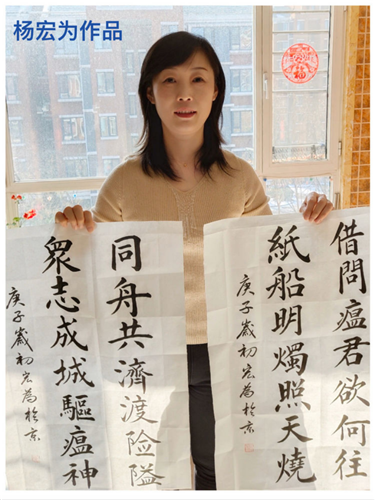 杨宏为作品
福
借問瘟君欲何往
紙船明燭照天燒
庚子歲初宏為於京
同舟共濟渡险隘
衆志成城驅瘟神
庚子歲初宏為於京